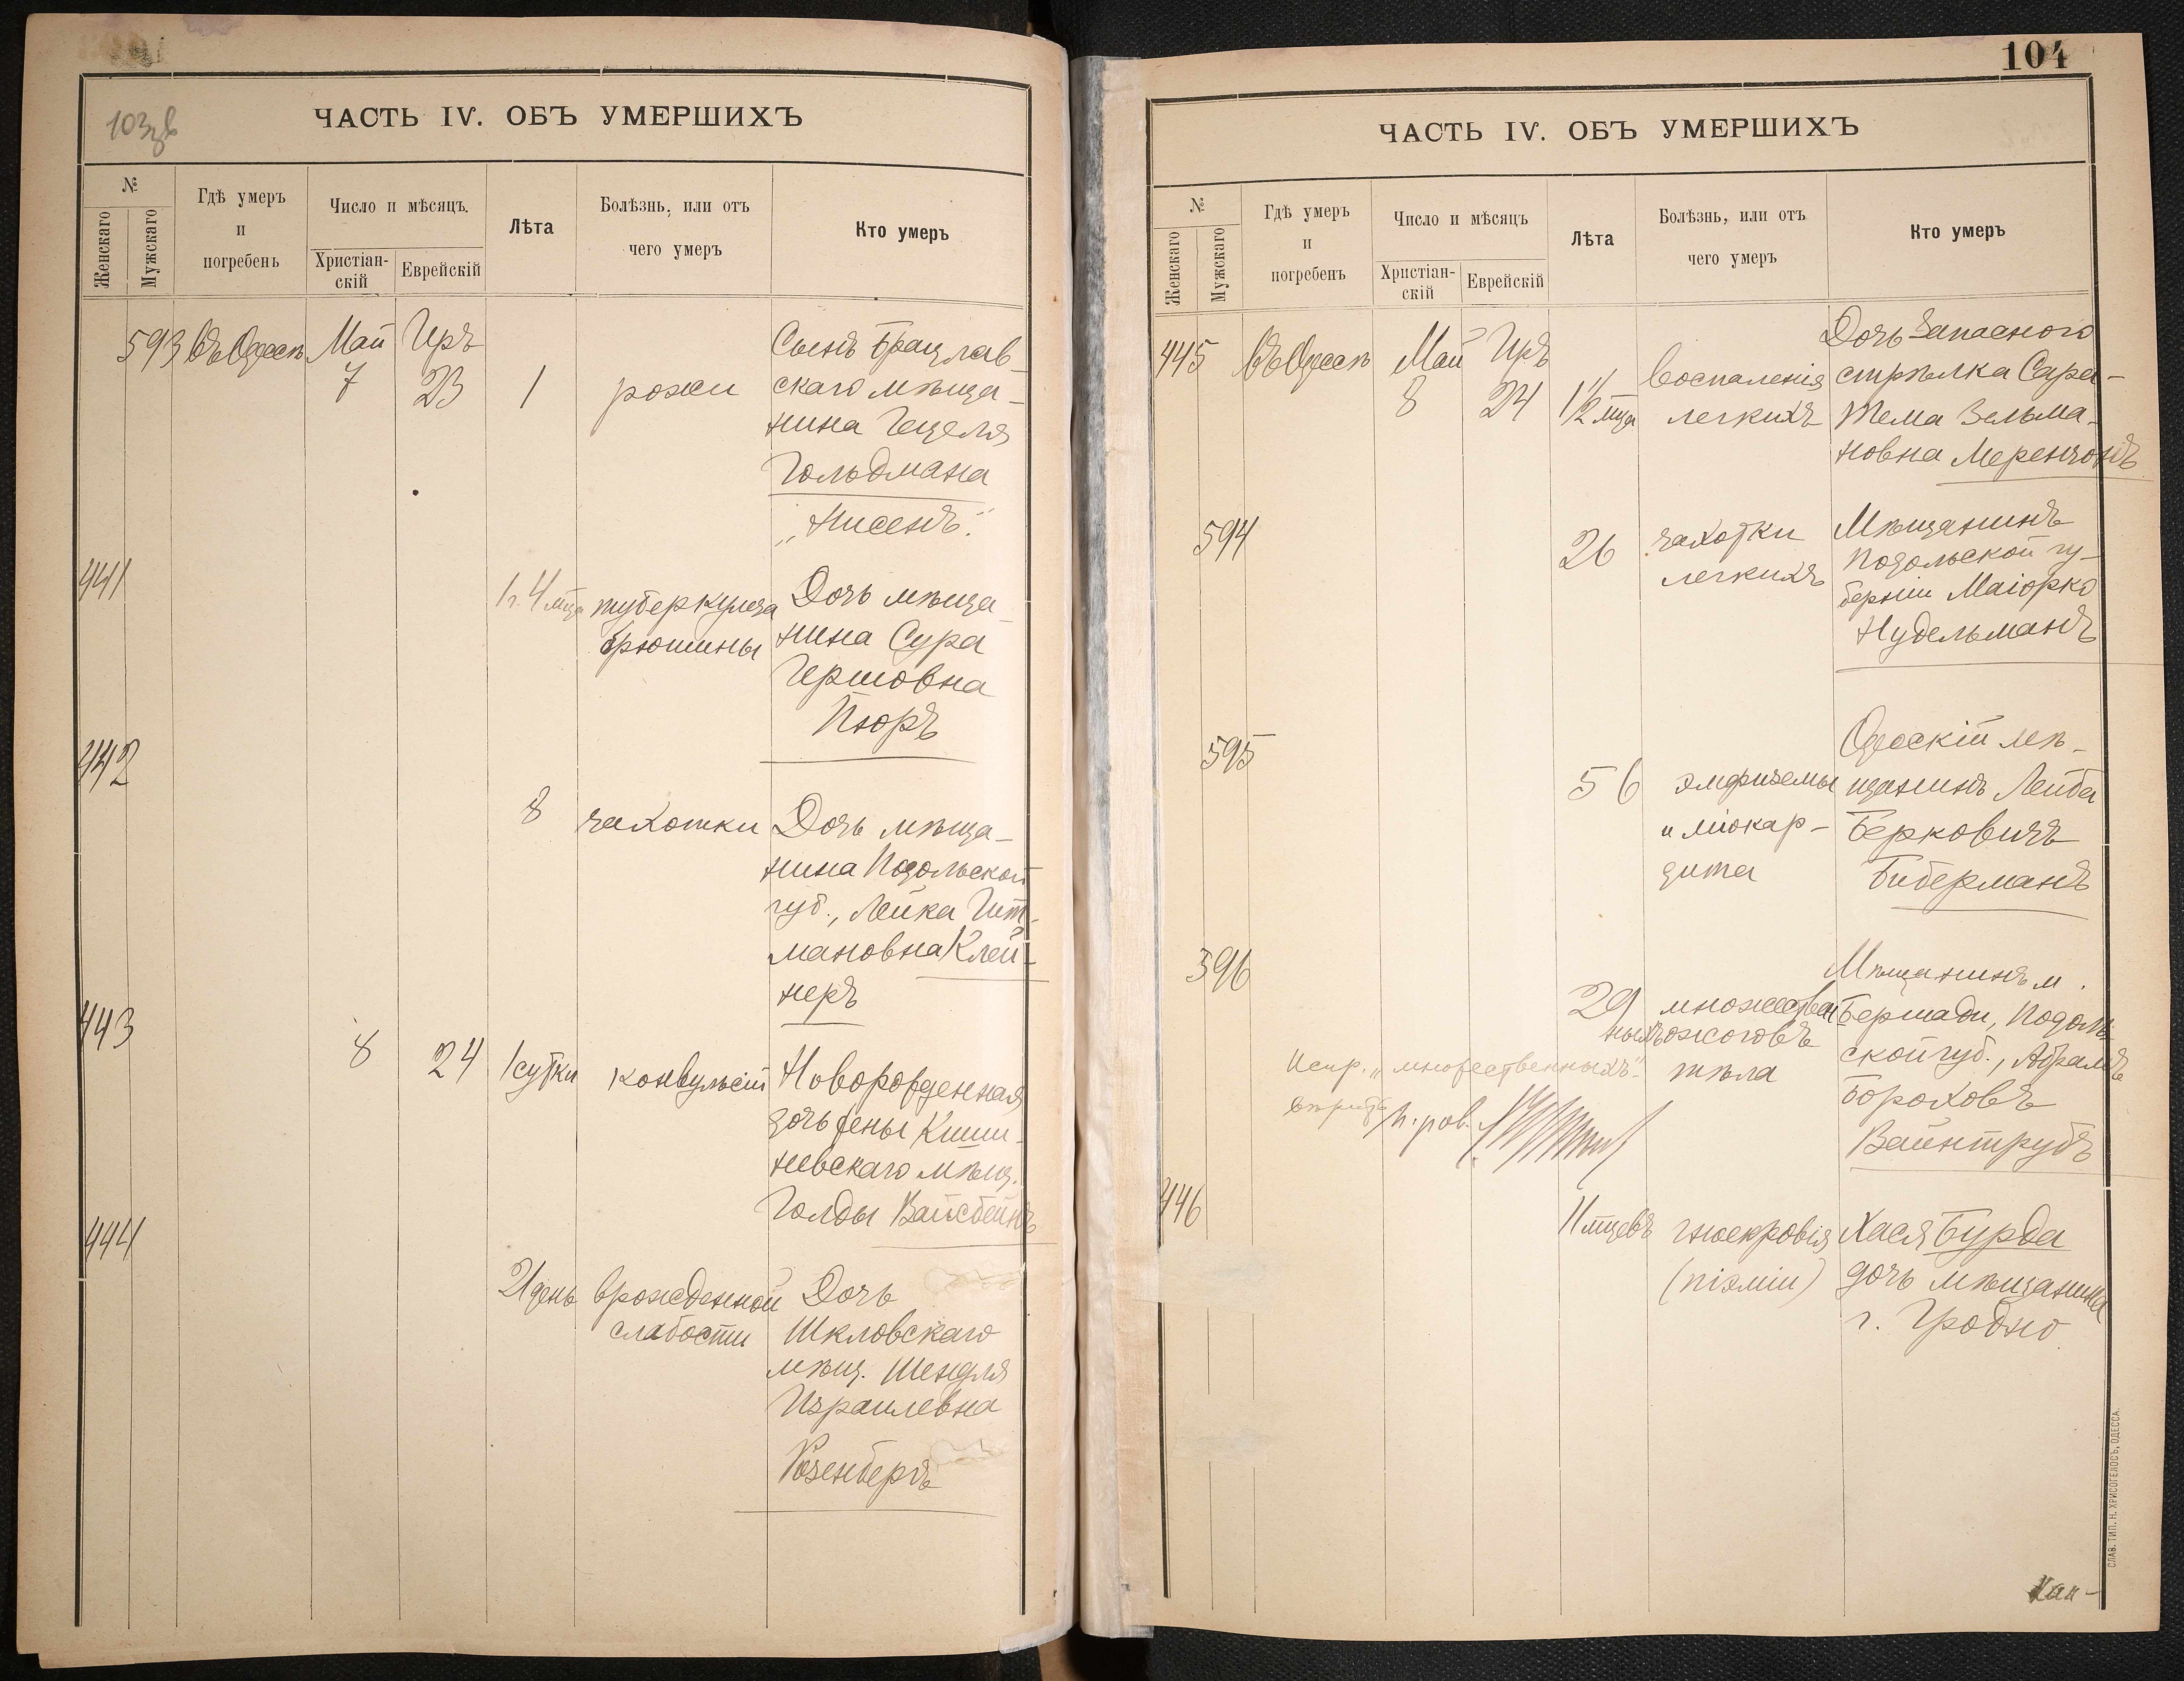 103
ЧАСТЬ IV. ОБЪ УМЕРШИХЪ
№
Женскаго
Мужскаго
Гдѣ умеръ
и
погребенъ
Число и мѣсяцъ.
Христіан-
скій
Еврейскій
Лѣта
Болѣзнь, или отъ
чего умеръ
Кто умеръ
593 въ Одессѣ Май 7 Иръ 23 1 рожи
Сынъ Брацлав-
скаго мѣща-
нина Гецеля
Гольдмана
„Нисенъ".
441 1 г. 4 мца туберкулеза
брюшины
Дочь мѣща-
нина Сура
Гершовна
Пюръ
442 8 чахотки
Дочь мѣща-
нина Подольской
губ., Лейка Гит-
мановна Клей-
неръ
443 8 24 1 сутки конвульсій
Новорожденная
дочь жены Киши-
невскаго мѣщ.
Голды Вайсбейнъ
444 21 день врожденной
слабости
Дочь
Шкловскаго
мѣщ. Шендля
Израилевна
Розенбергъ
104
ЧАСТЬ IV. ОБЪ УМЕРШИХЪ
№
Женскаго
Мужскаго
Гдѣ умеръ
и
погребенъ
Число и мѣсяцъ
Христіан-
скій
Еврейскій
Лѣта
Болѣзнь, или отъ
чего умеръ
Кто умеръ
445 въ Одессѣ Май 8 Иръ 24 1 1/2 мца воспаленія
легкихъ
Дочь запаснаго
стрѣлка Сара-
Тема Зельма-
новна Меренчонъ
594 26 чахотки
легкихъ
Мѣщанинъ
Подольской гу-
берніи Маіорко
Нудельманъ
595 56 эмфиземы
и міокар-
дита
Одесскій мѣ-
щанинъ Лейба
Берковичъ
Биберманъ
596 29 множествен
ныхъ ожоговъ
тѣла
Мѣщанинъ м.
Бершади, Подоль-
ской губ., Абрамъ
Бороховъ
Вайнтрубъ
Испр. „множественныхъ".
446 11 мцевъ гноекровія
(піэміи)
Хася Бурда
дочь мѣщанина
г. Гродно
СЛАВ. ТИП. Н. ХРИСОГЕЛОСЪ, ОДЕССА.